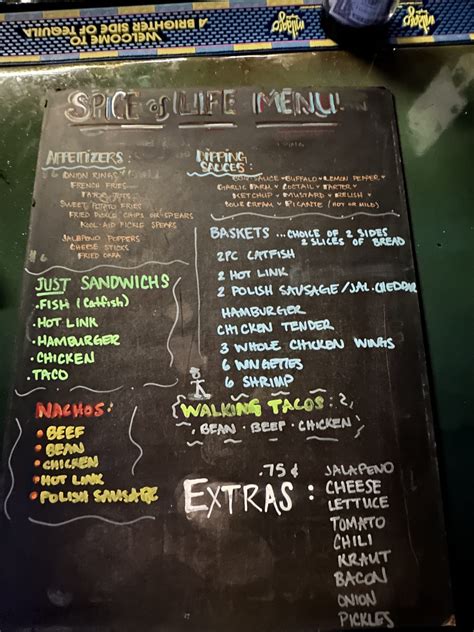 WELCOME TO
A BRIGHTER SIDE OF TEQUILA
SPICE of LIFE MENU!
APPETIZERS:
ONION RINGS
FRENCH FRIES
TATOR TOTS
SWEET POTATO FRIES
FRIED PICKLE CHIPS OR SPEARS
KOOL-AID PICKLE SPEARS
JALAPENO POPPERS
CHEESE STICKS
FRIED OKRA
DIPPING SAUCES:
SAUCE • BUFFALO • LEMON PEPPER •
GARLIC PARM • COCTAIL • TARTER •
KETCHUP • MUSTARD • RELISH •
SOUR CREAM • PICANTE (HOT OR MILD)
BASKETS... CHOICE OF 2 SIDES
2 SLICES OF BREAD
2PC CATFISH
2 HOT LINK
2 POLISH SAUSAGE/JAL.CHEDDAR
HAMBURGER
CHICKEN TENDER
3 WHOLE CHICKEN WINGS
6 WINGETTES
6 SHRIMP
JUST SANDWICHS
• FISH (Catfish)
• HOT LINK
• HAMBURGER
• CHICKEN
• TACO
NACHOS:
• BEEF
• BEAN
• CHICKEN
• HOT LINK
• POLISH SAUSAGE
WALKING TACOS:
• BEAN • BEEF • CHICKEN
.75¢
EXTRAS:
JALAPENO
CHEESE
LETTUCE
TOMATO
CHILI
KRAUT
BACON
ONION
PICKLES